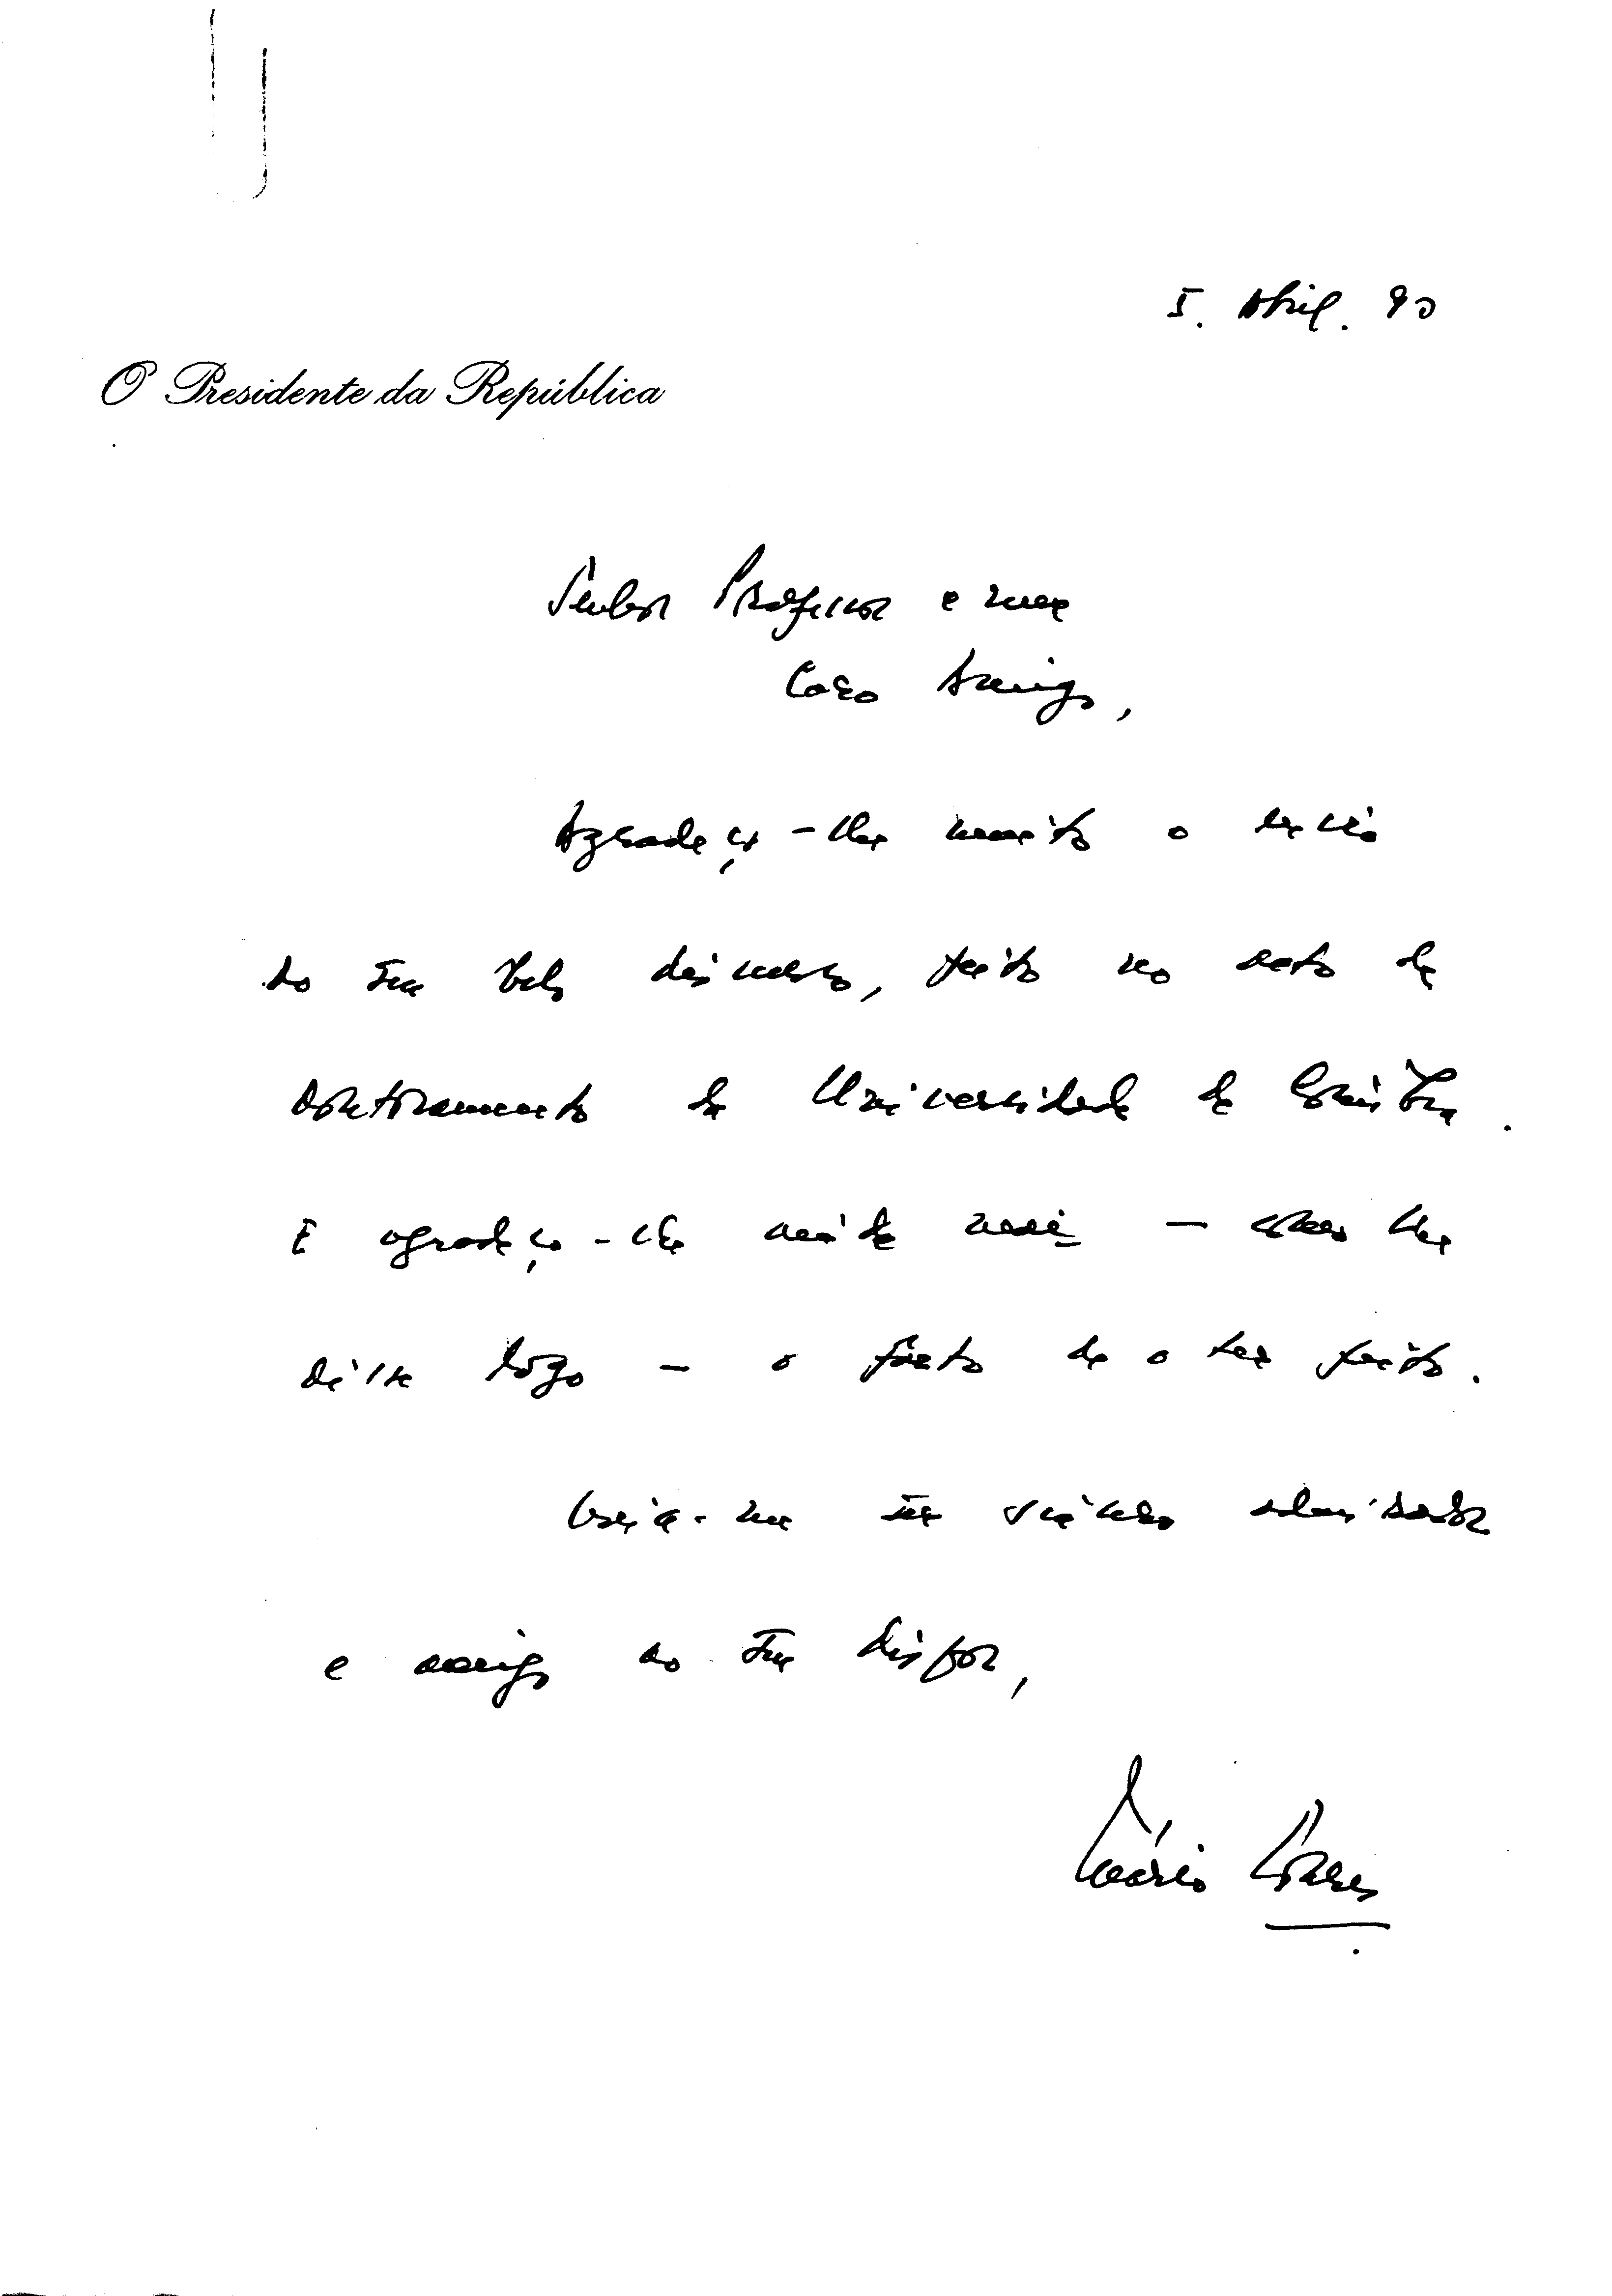 5. Abril. 90
O Presidente da República
Senhor Professor e meu
Caro Amigo,
Agradeço-lhe muito o envio
do seu belo discurso, feito no acto de
doutoramento da Universidade de Coimbra.
E agradeço-lhe ainda mais — como lhe
disse logo — o facto de o ter feito.
Creia-me seu sincero admirador
e amigo ao seu dispor,
Mário Soares